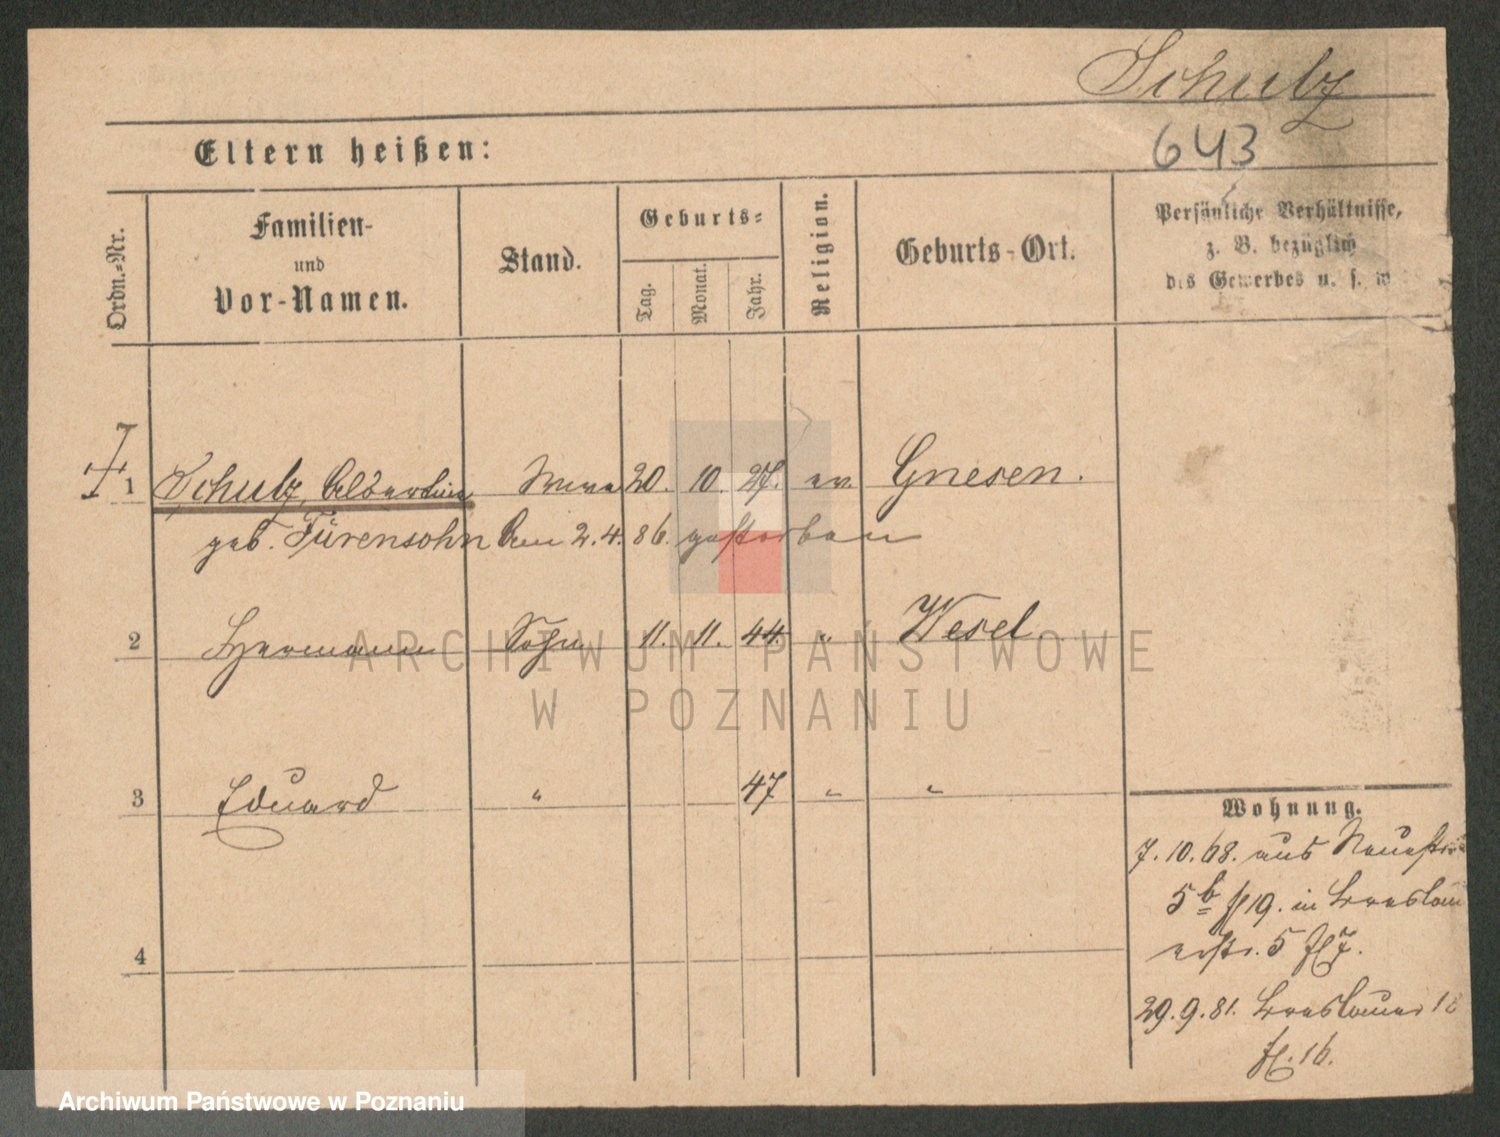 Schulz
643
Eltern heißen:
Ordn.-Nr.
Familien-
und
Vor-Namen.
Stand.
Geburts-
Tag.
Monat.
Jahr.
Religion.
Geburts-Ort.
Persönliche Verhältnisse,
z. B. bezüglich
des Gewerbes u. s. w
1 Schulz, Albertine 20. 10. 27. ev. Gnesen.
geb. Fürensohn Am 2.4.86. gestorben
2 Hermann Sohn 11. 11. 44. " Wesel
3 Eduard " 47 " "
4
Wohnung.
7.10.68. aus
5b / 19. in Breslau
erstr. 5 / 7.
29.9.81. Breslauer
/ 16.
ARCHIWUM PAŃSTWOWE
W POZNANIU
Archiwum Państwowe w Poznaniu